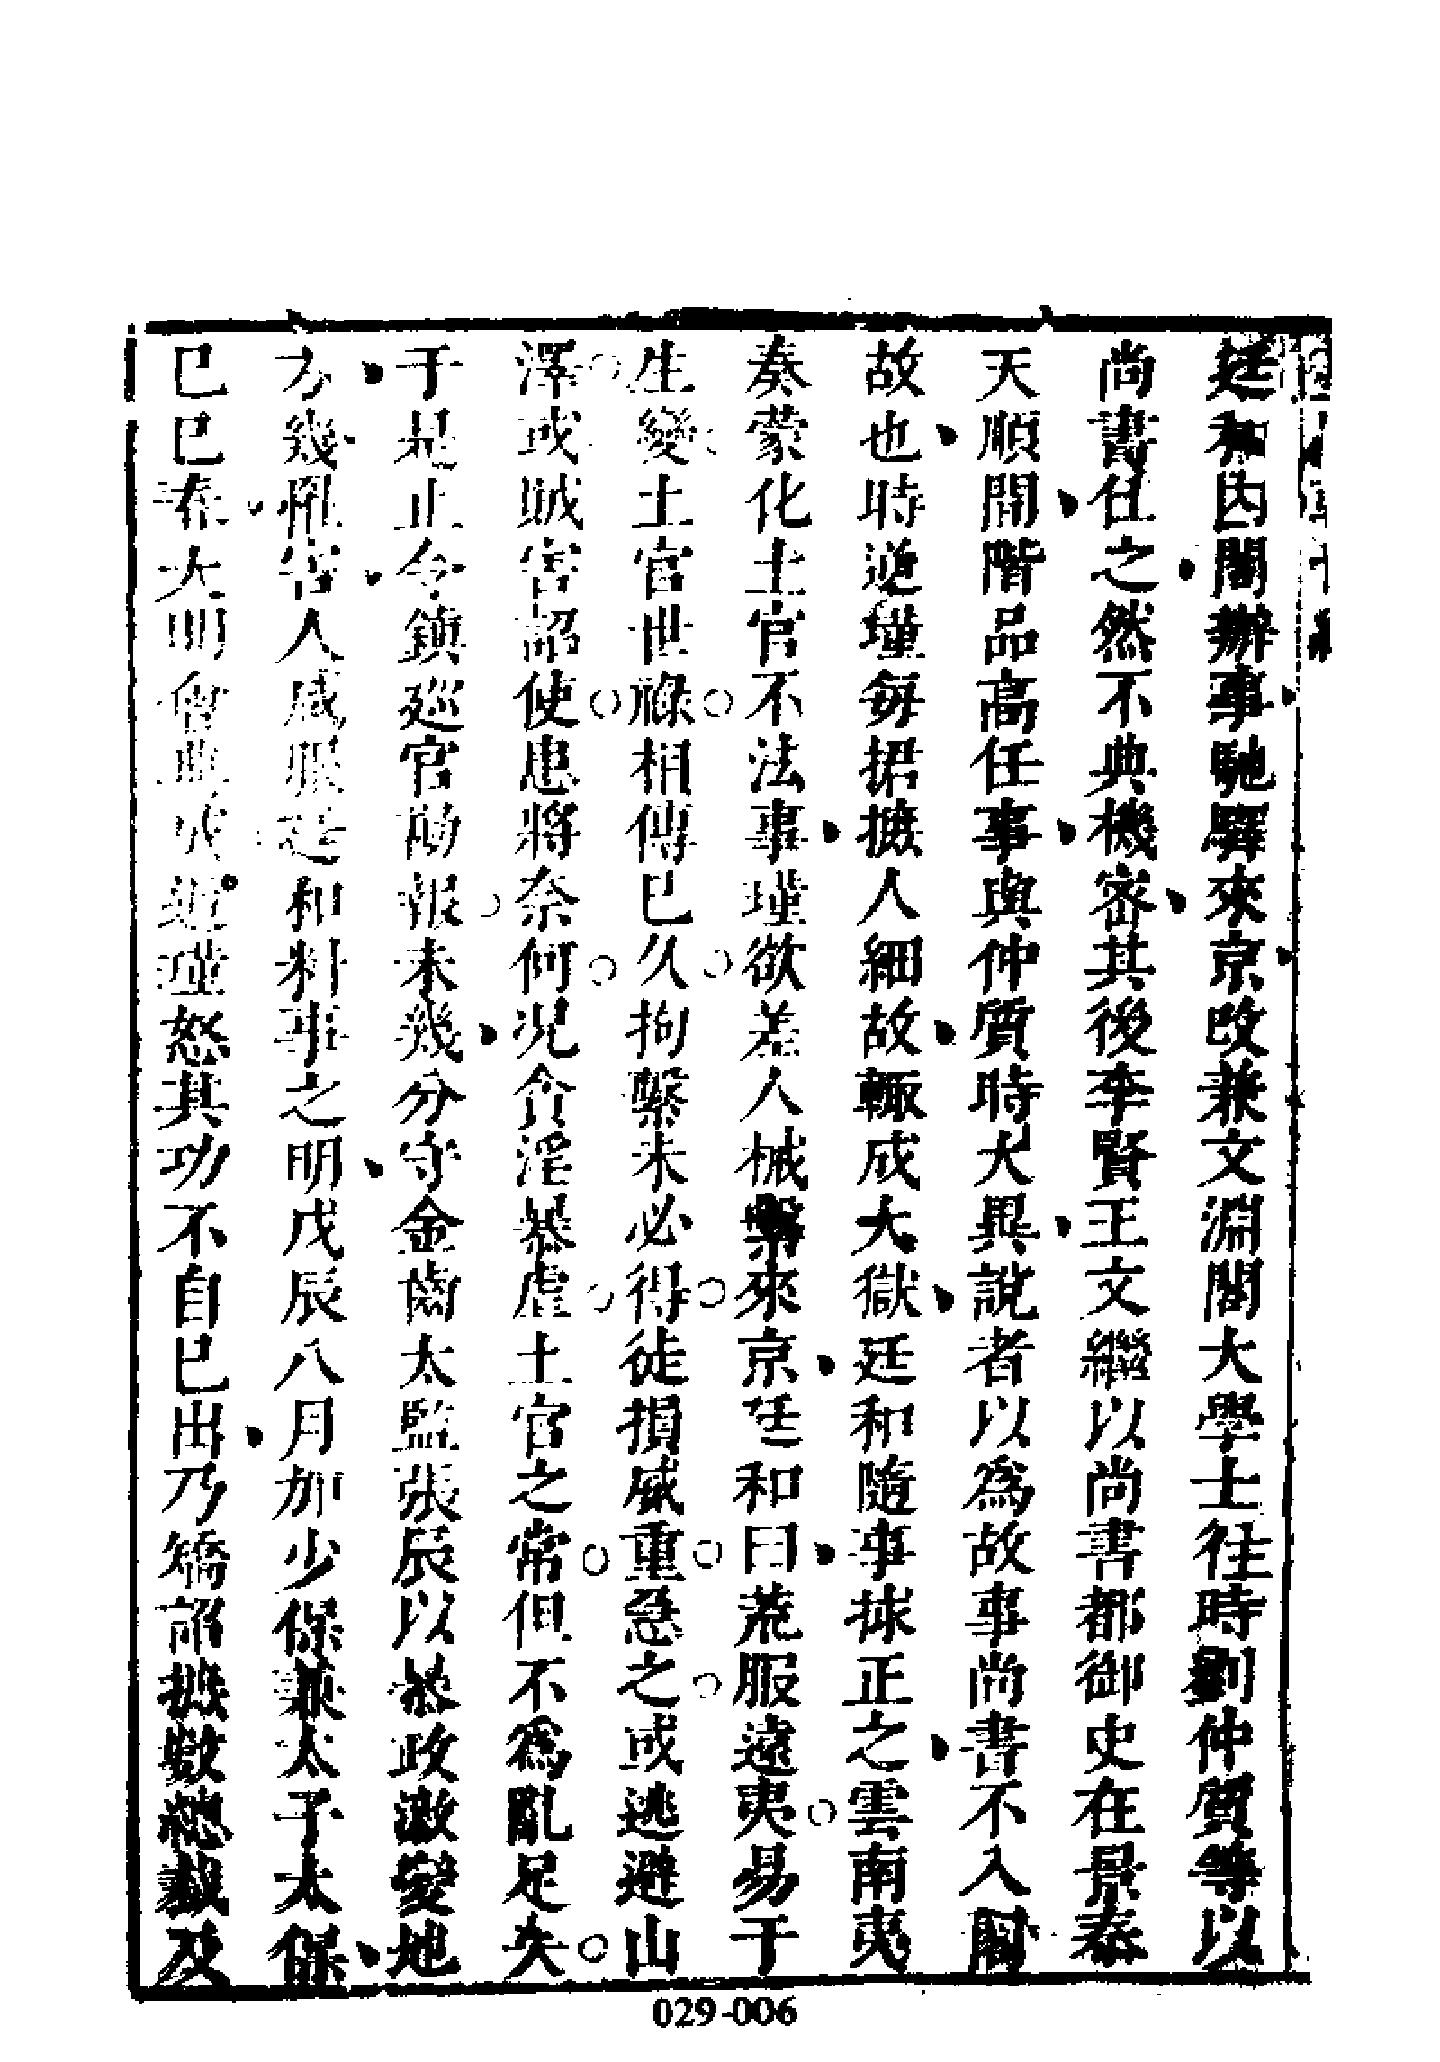 廷和因閣辦事馳驛來京改兼文淵閣大學士往時劉仲質等以
尚書任之然不典機密其後李賢王文繼以尚書都御史在景泰
天順間階品高任事與仲質時大異說者以為故事尚書不入閣
故也時逆瑾每捃摭人細故輒成大獄廷和隨事捄正之雲南夷
奏蒙化土官不法事瑾欲差人械繫來京廷和曰荒服遠夷易于
生變土官世祿相傳已久拘繫未必得徒損威重急之或逃避山
澤或賊害詔使患將奈何況貪淫暴虐土官之常但不為亂足矣
于是止令鎮巡官勘報未幾分守金齒太監張辰以恭政激變地
方幾罹害人咸服廷和料事之明戊辰八月加少保兼太子太保
己巳春大明會典成逆瑾怒其功不自已出乃矯詔摭數總裁及
029-006